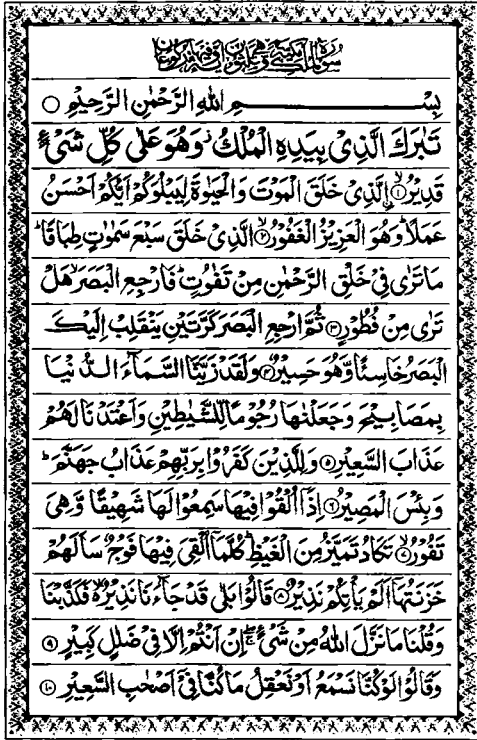 سورة الملك مكية وهي ثلثون اية وفيها ركوعان
بِسْمِ اللهِ الرَّحْمٰنِ الرَّحِيْمِ ○
تَبٰرَكَ الَّذِىْ بِيَدِهِ الْمُلْكُ ۫ وَهُوَ عَلٰى كُلِّ شَىْءٍ
قَدِيْرُ ۙ﴿۱﴾ الَّذِىْ خَلَقَ الْمَوْتَ وَالْحَيٰوةَ لِيَبْلُوَكُمْ اَيُّكُمْ اَحْسَنُ
عَمَلًا ؕ وَهُوَ الْعَزِيْزُ الْغَفُوْرُ ۙ﴿۲﴾ الَّذِىْ خَلَقَ سَبْعَ سَمٰوٰتٍ طِبَاقًا ؕ
مَا تَرٰى فِىْ خَلْقِ الرَّحْمٰنِ مِنْ تَفٰوُتٍ ؕ فَارْجِعِ الْبَصَرَ ۙ هَلْ
تَرٰى مِنْ فُطُوْرٍ ﴿۳﴾ ثُمَّ ارْجِعِ الْبَصَرَ كَرَّتَيْنِ يَنْقَلِبْ اِلَيْكَ
الْبَصَرُ خَاسِئًا وَّهُوَ حَسِيْرٌ ﴿۴﴾ وَلَقَدْ زَيَّنَّا السَّمَآءَ الدُّنْيَا
بِمَصَابِيْحَ وَجَعَلْنٰهَا رُجُوْمًا لِّلشَّيٰطِيْنِ وَاَعْتَدْنَا لَهُمْ
عَذَابَ السَّعِيْرِ ﴿۵﴾ وَلِلَّذِيْنَ كَفَرُوْا بِرَبِّهِمْ عَذَابُ جَهَنَّمَ ؕ
وَبِئْسَ الْمَصِيْرُ ﴿۶﴾ اِذَاۤ اُلْقُوْا فِيْهَا سَمِعُوْا لَهَا شَهِيْقًا وَّهِىَ
تَفُوْرُ ۙ﴿۷﴾ تَكَادُ تَمَيَّزُ مِنَ الْغَيْظِ ؕ كُلَّمَاۤ اُلْقِىَ فِيْهَا فَوْجٌ سَاَلَهُمْ
خَزَنَتُهَاۤ اَلَمْ يَاْتِكُمْ نَذِيْرٌ ﴿۸﴾ قَالُوْا بَلٰى قَدْ جَآءَنَا نَذِيْرٌ ۙ فَكَذَّبْنَا
وَقُلْنَا مَا نَزَّلَ اللهُ مِنْ شَىْءٍ ۚۖ اِنْ اَنْتُمْ اِلَّا فِىْ ضَلٰلٍ كَبِيْرٍ ﴿۹﴾
وَقَالُوْا لَوْ كُنَّا نَسْمَعُ اَوْ نَعْقِلُ مَا كُنَّا فِىْۤ اَصْحٰبِ السَّعِيْرِ ﴿۱۰﴾